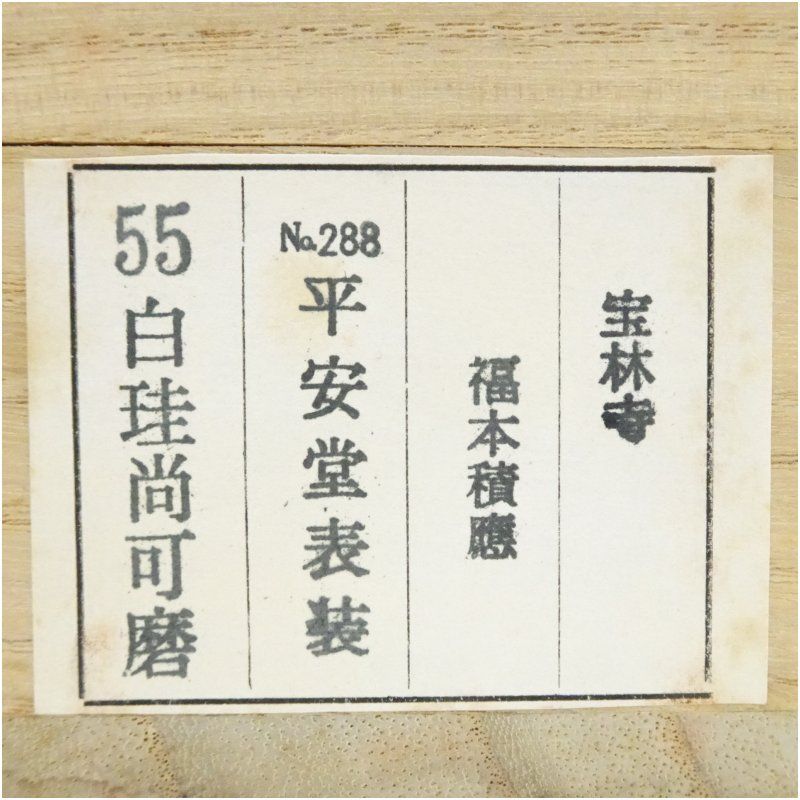 宝林寺
福本積應
No.288 平安堂表装
55 白珪尚可磨